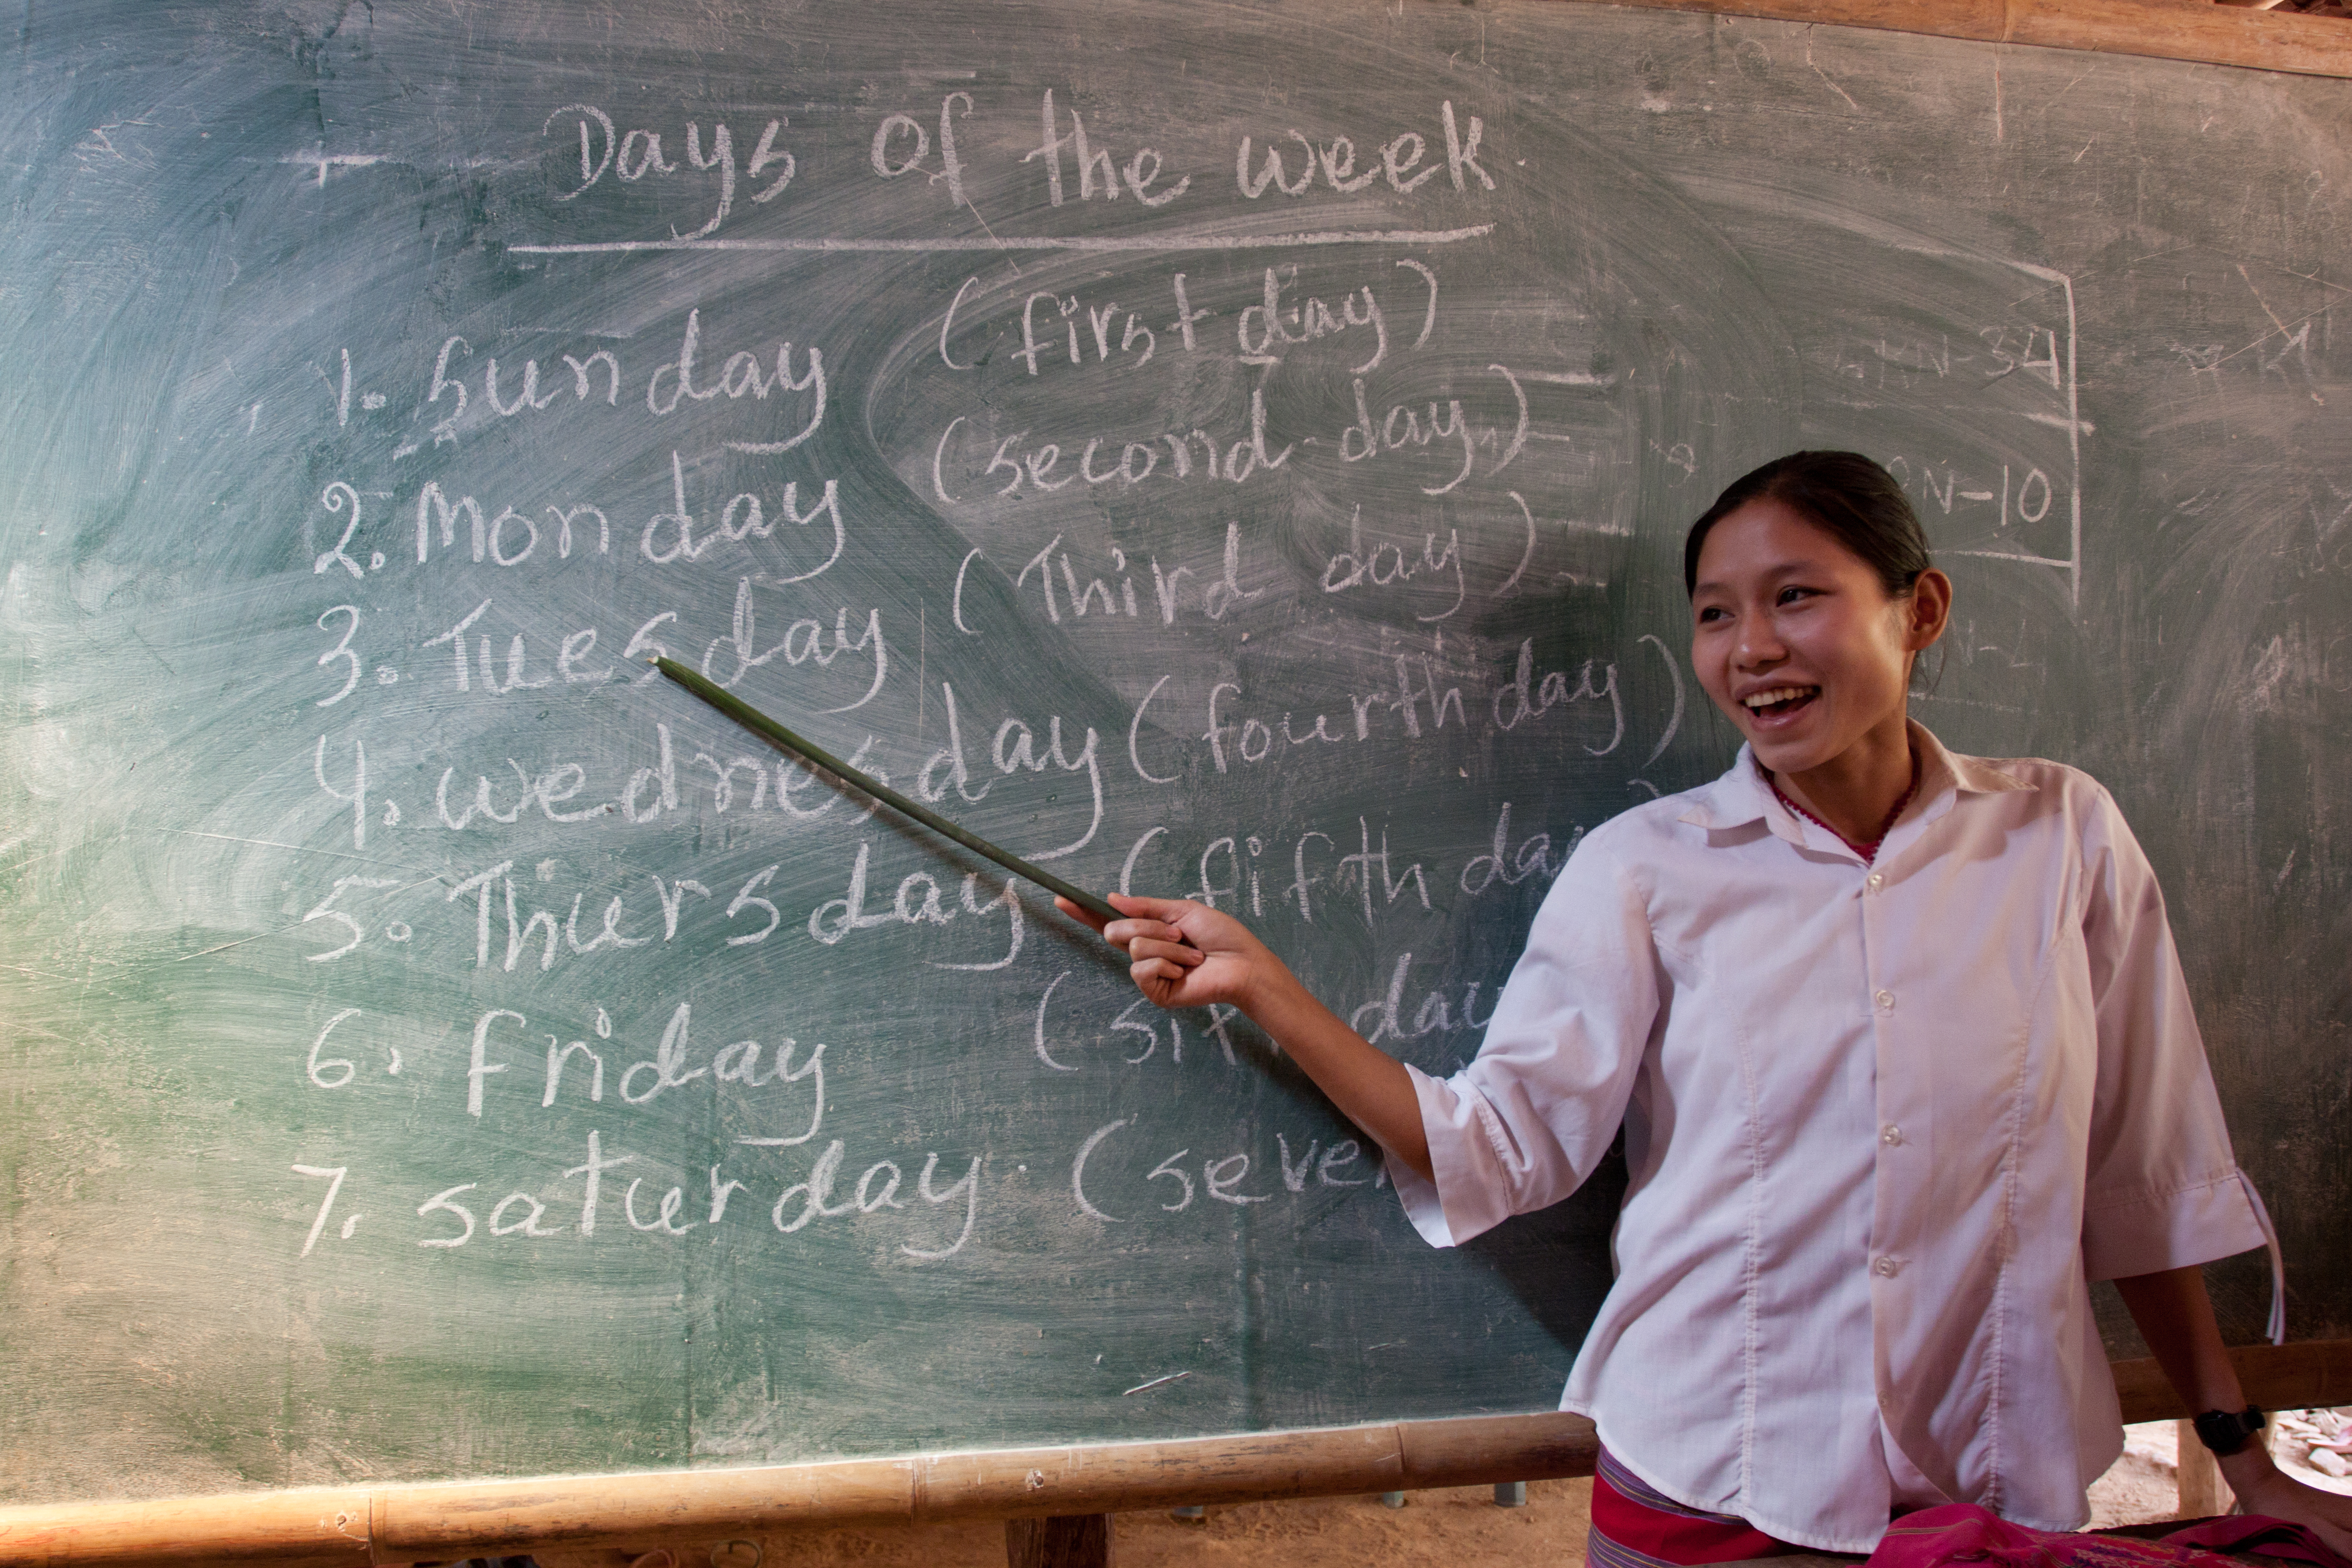 Days of the week.
1. Sunday (first day)
2. Monday (second day)
3. Tuesday (Third day)
4. wednesday (fourth day)
5. Thursday (fifth day)
6. friday ( day
7. saturday. (
N-34
N-10